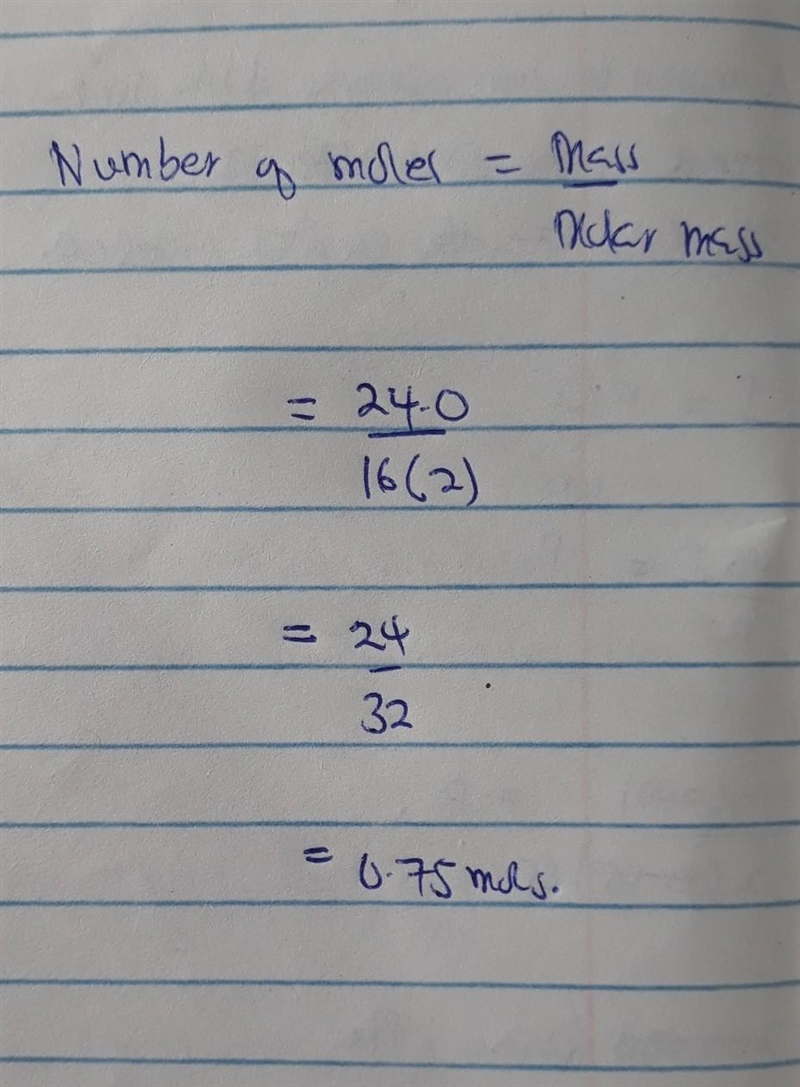 Number of moles = Mass
Molar mass
= 24.0
16(2)
= 24
32
= 0.75 mols.